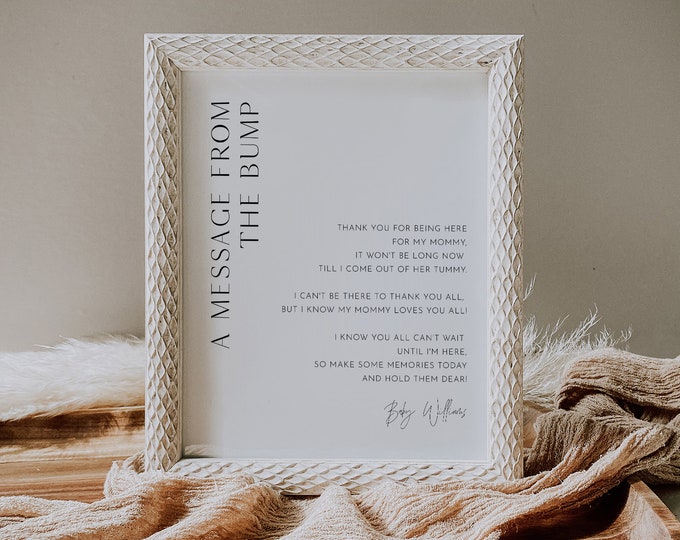 A MESSAGE FROM
THE BUMP
THANK YOU FOR BEING HERE
FOR MY MOMMY,
IT WON'T BE LONG NOW
TILL I COME OUT OF HER TUMMY.
I CAN'T BE THERE TO THANK YOU ALL,
BUT I KNOW MY MOMMY LOVES YOU ALL!
I KNOW YOU ALL CAN'T WAIT
UNTIL I'M HERE,
SO MAKE SOME MEMORIES TODAY
AND HOLD THEM DEAR!
Baby Williams